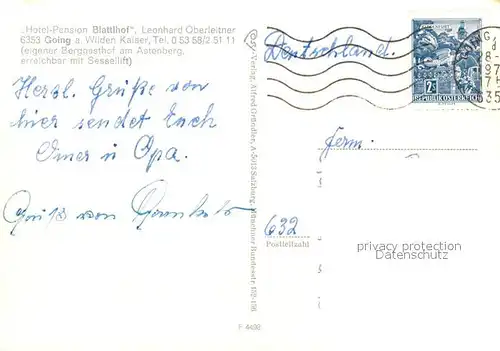 „Hotel-Pension Blattlhof“, Leonhard Oberleitner
6353 Going a. Wilden Kaiser, Tel. 0 53 58/2 51 11
(eigener Berggasthof am Astenberg,
erreichbar mit Sessellift)
Herzl. Grüße von
hier sendet Euch
Omer u Opa.
Gruß von
Deutschland.
REPUBLIK ÖSTERREICH
Ferm.
632
Postleitzahl
privacy protection
Datenschutz
Verlag Alfred Gründler, A-5013 Salzburg, Münchner Bundesstr.
F 4492